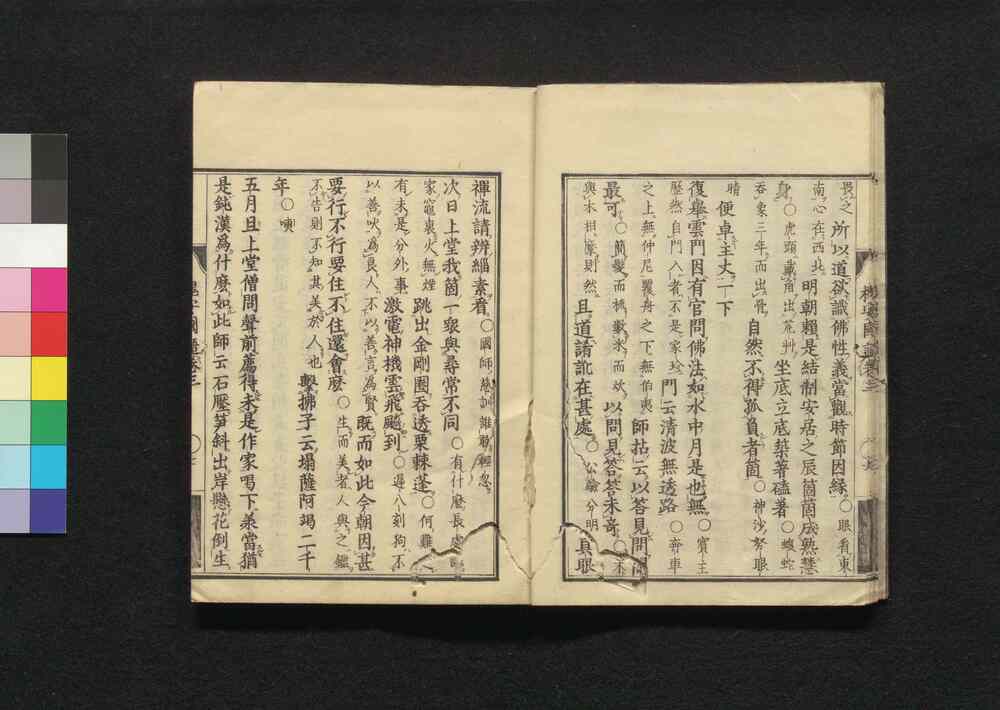 畏之 所以道欲識佛性義當觀時節因緣○眼看東
南心在西北 明朝賴是結制安居之辰箇箇成熟慧
身○虎頭戴角出荒草 坐底立底築著磕著○蟒蛇
吞象三年而出骨 自然不得孤負者箇○神沙努眼
睛 便卓主丈一下
復擧雲門因有官問佛法如水中月是也無○賓主
歷然自門入者不是家珍 門云清波無透路○奔車
之上無仲尼覆舟之下無伯夷 師拈云以答見問
最可○簡髮而櫛數米而炊 以問見答答未奇○木
與木相摩則然 且道請訛在甚處○公論分明 具眼
禪流請辨緇素看○國師慈訓誰敢輕忽
次日上堂我箇一衆與尋常不同○有什麼長處
家竈裏火無煙 跳出金剛圈吞透栗棘蓬○何難
有未是分外事 激電神機雲飛飈到○遲八刻狗不
以善吠爲良人不以善言爲賢 既而如此今朝因甚
要行不行要住不住還會麼○生而美者人與之鑑
不告則不知其美於人也 擊拂子云塌薩阿竭二千
年○㘞
五月旦上堂僧問聲前薦得未是作家喝下承當猶
是鈍漢爲什麼如此師云石壓笋斜出岸懸花倒生